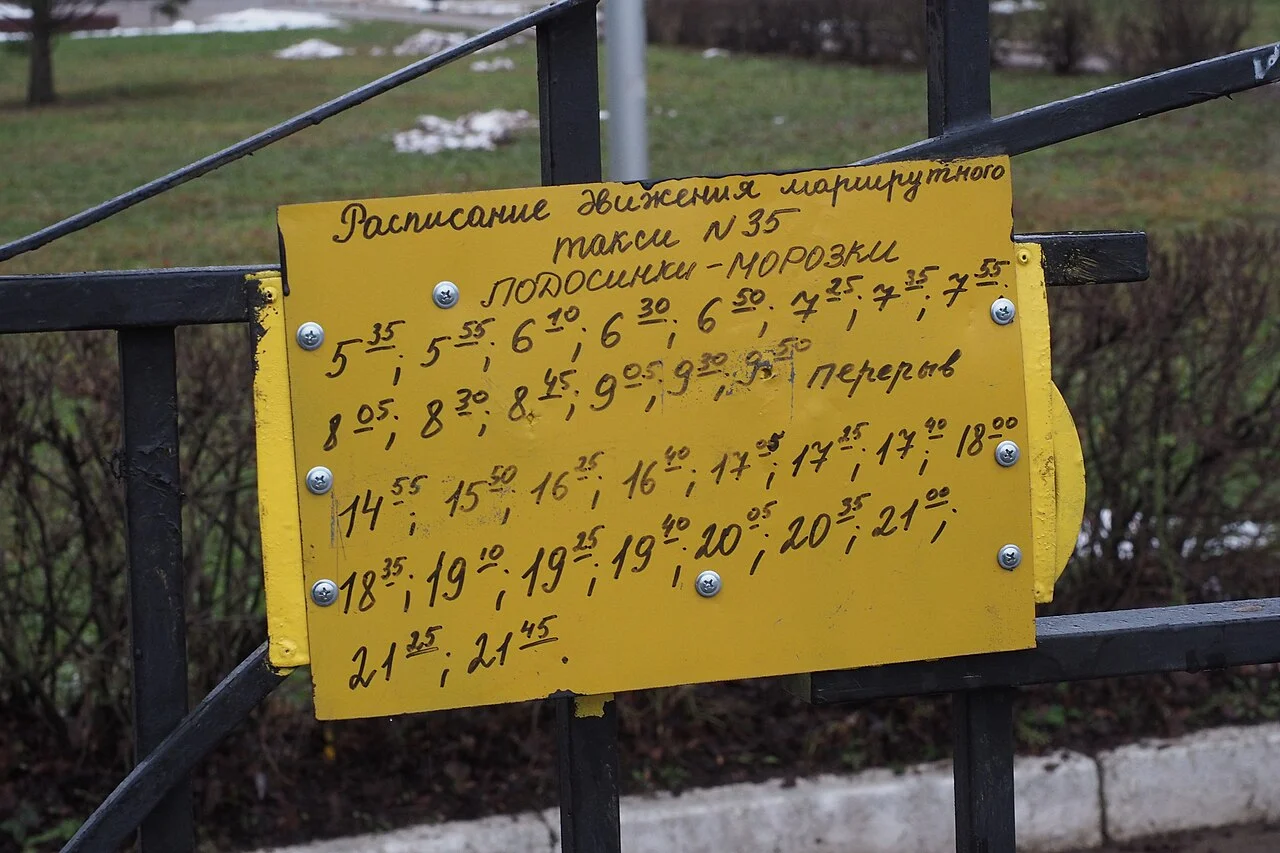 Расписание движения маршрутного
такси N 35
ПОДОСИНКИ - МОРОЗКИ
5 35; 5 55; 6 10; 6 30; 6 50; 7 25; 7 35; 7 55.
8 05; 8 30; 8 45; 9 05; 9 30; 9 50 перерыв
14 55; 15 50; 16 25; 16 40; 17 05; 17 25; 17 40; 18 00
18 35; 19 10; 19 25; 19 40; 20 05; 20 35; 21 00;
21 25; 21 45.